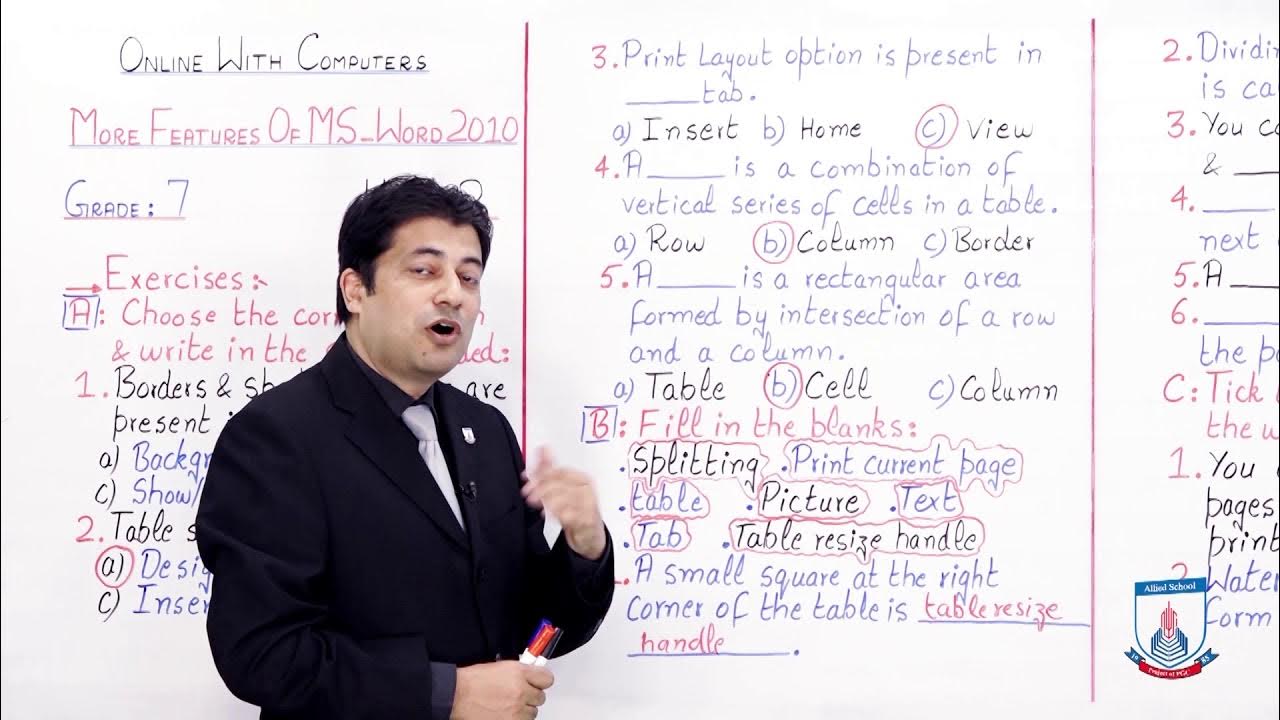 ONLINE WITH COMPUTERS
MORE FEATURES OF MS_WORD 2010
GRADE: 7
Exercises:-
A: Choose the
& write in the
1. Borders & are
present
a)
c) Show/
2. Table
a)
c)
3. Print Layout option is present in
____ tab.
a) Insert b) Home c) View
4. A ____ is a combination of
vertical series of cells in a table.
a) Row b) Column c) Border
5. A ____ is a rectangular area
formed by intersection of a row
and a column.
a) Table b) Cell c) Column
B: Fill in the blanks:
.Splitting .Print current page
.table .Picture .Text
.Tab .Table resize handle
A small square at the right
corner of the table is table resize
handle.
2.
is
3. You
& ____
4. ____
next
5. A ____
6. ____
the
C: Tick
the
1. You
pages
print
2.
form
Allied School
Project of PGC